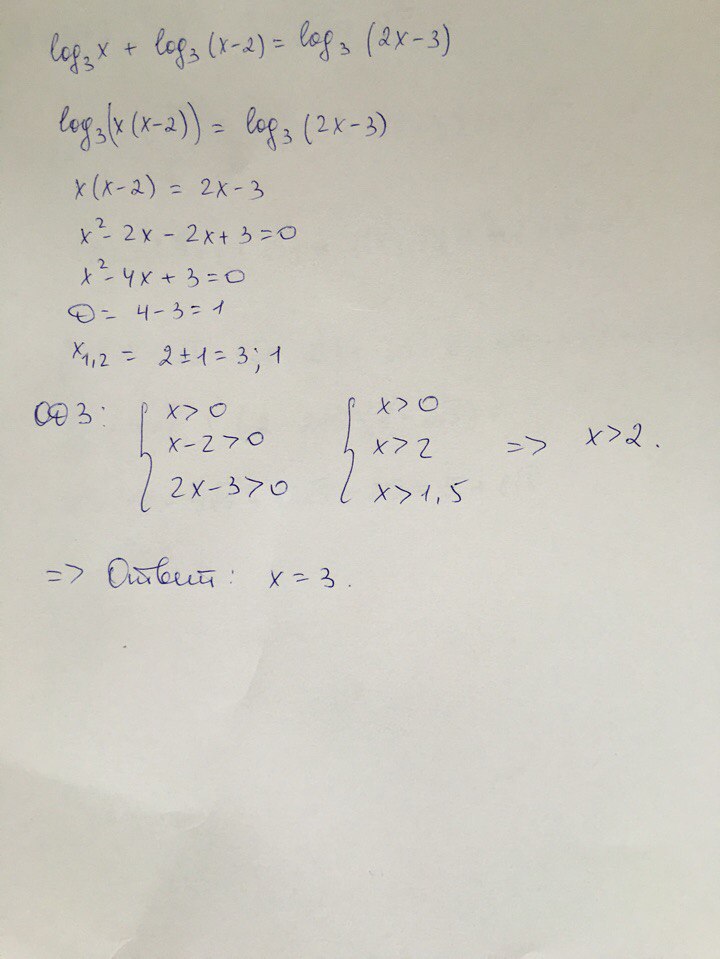 log₃x + log₃(x-2) = log₃ (2x-3)
log₃(x(x-2)) = log₃(2x-3)
x(x-2) = 2x-3
x²-2x-2x+3=0
x²-4x+3=0
D= 4-3=1
x₁,₂ = 2±1=3;1
ОДЗ: { x>0 { x>0
x-2>0 x>2 => x>2.
2x-3>0 x>1,5
=> Ответ: x=3.